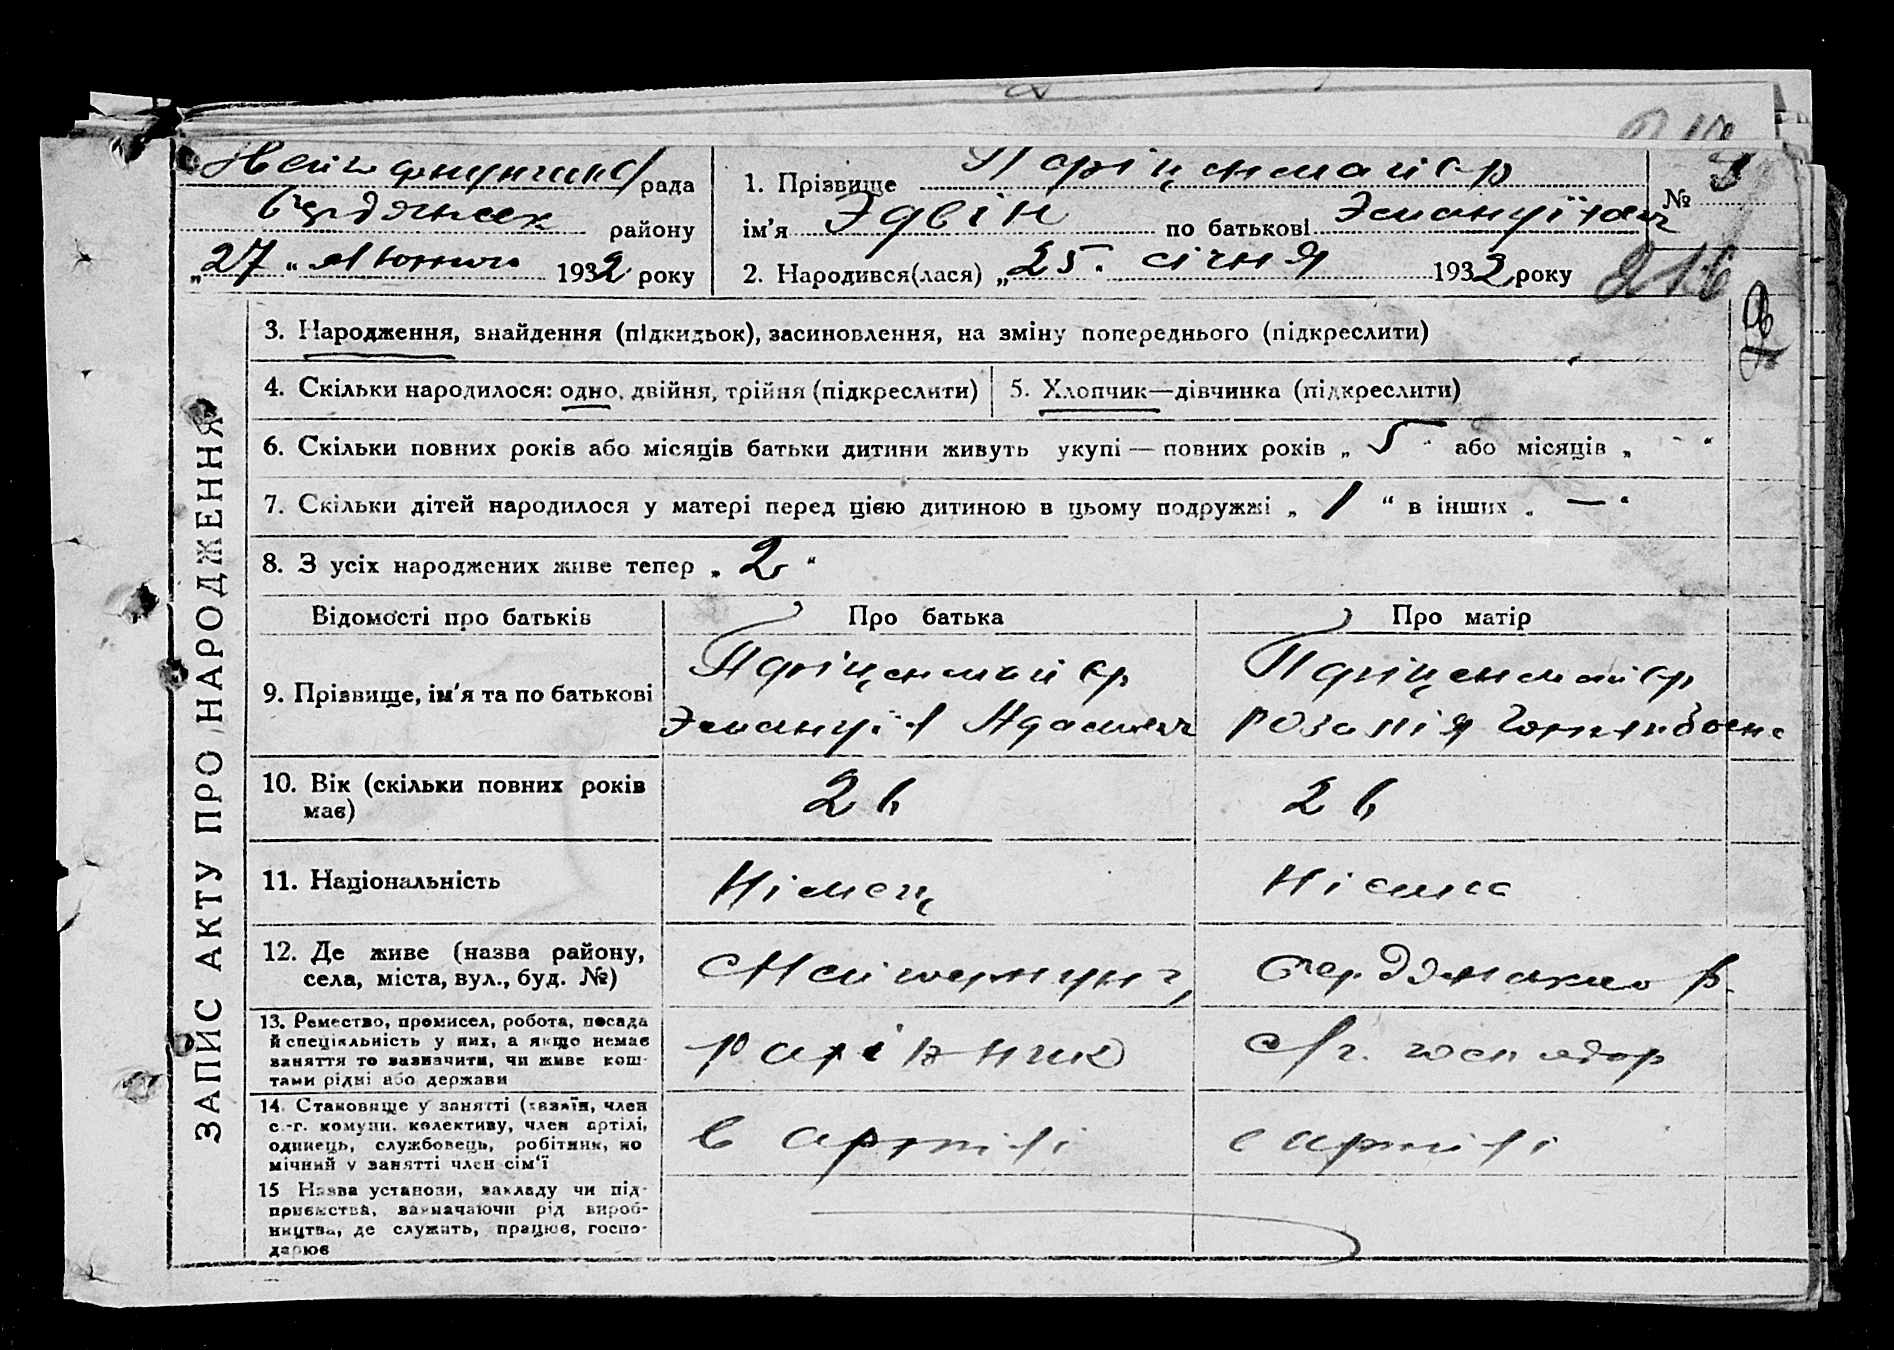 рада № 3
1. Прізвище
району
ім'я Эдвін по батькові
„27" Лютого 1932 року
2. Народився(лася) „25. січня 1932 року
216
3. Народження, знайдення (підкидьок), засиновлення, на зміну попереднього (підкреслити)
4. Скільки народилося: одно, двійня, трійня (підкреслити)
5. Хлопчик—дівчинка (підкреслити)
6. Скільки повних років або місяців батьки дитини живуть укупі — повних років „ 5 " або місяців „ - "
7. Скільки дітей народилося у матері перед цією дитиною в цьому подружжі „ 1 " в інших „ — "
8. З усіх народжених живе тепер „ 2 "
ЗАПИС АКТУ ПРО НАРОДЖЕННЯ
Відомості про батьків
Про батька
Про матір
9. Прізвище, ім'я та по батькові
Эмануїл Адамович
Розалія
10. Вік (скільки повних років має)
26
26
11. Національність
Німець
Німка
12. Де живе (назва району,
села, міста, вул., буд. №)
Бердянського р.
13. Ремество, промисел, робота, посада
й спеціяльність у них, а якщо немає
заняття то зазначити, чи живе кош-
тами рідні або держави
14. Становище у занятті (хазяїн, член
с.-г. комуни, колективу, член артілі,
одинець, службовець, робітник, по
мічний у занятті член сім'ї
в артілі
в артілі
15 Назва установи, закладу чи під-
приємства, зазначаючи рід вироб-
ництва, де служить, працює, госпо-
дарює